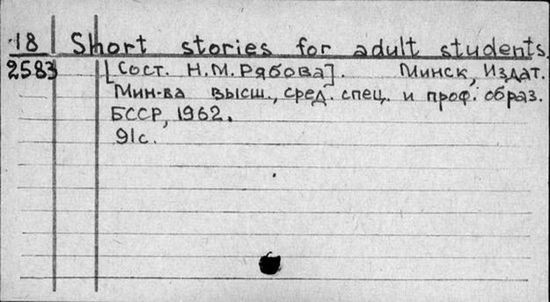 18 Short stories for adult students.
2583 [Сост. Н.М. Рябова]. Минск, Издат.
Мин-ва высш., сред. спец. и проф. образ.
БССР, 1962.
91с.